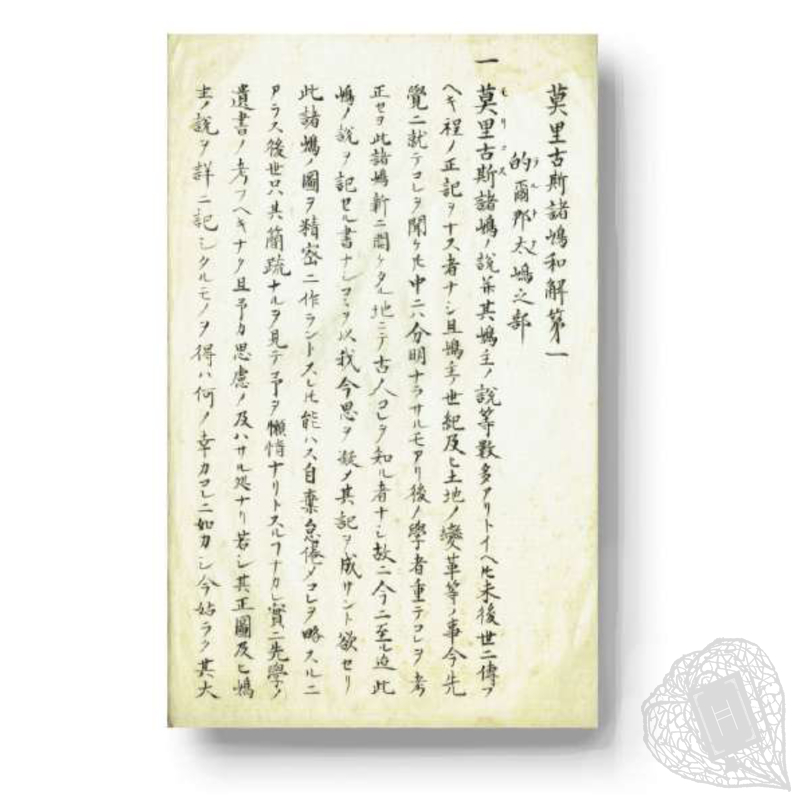 莫里古斯諸嶋和解第一
的爾那太嶋之部
一
莫里古斯諸嶋ノ説并其嶋主ノ説等数多アリトイヘ𪜈未後世ニ傳フ
ヘキ程ノ正記ヲナス者ナシ且嶋主ノ世紀及ヒ土地ノ變革等ノ事今先
覺ニ就テコレヲ聞ケ𪜈中ニハ分明ナラサルモアリ後ノ學者重テコレヲ考
正セヨ此諸嶋新ニ開ケタル地ニテ古人コレヲ知ル者ナシ故ニ今ニ至ル迠此
嶋ノ説ヲ記セル書ナシコヽヲ以我今思ヲ凝メ其記ヲ成サント欲セリ
此諸嶋ノ圖ヲ精密ニ作ラントスレ𪜈能ハス自棄怠惓メコレヲ略スルニ
アラス後世只其簡疏ナルヲ見テ予ヲ懶惰ナリトスルヿナカレ實ニ先學ノ
遺書ノ考フヘキナク且予カ思慮ノ及ハサル処ナリ若シ其正圖及ヒ嶋
主ノ説ヲ詳ニ記シタルモノヲ得ハ何ノ幸カコレニ如カシ今姑ラク其大
モリコス